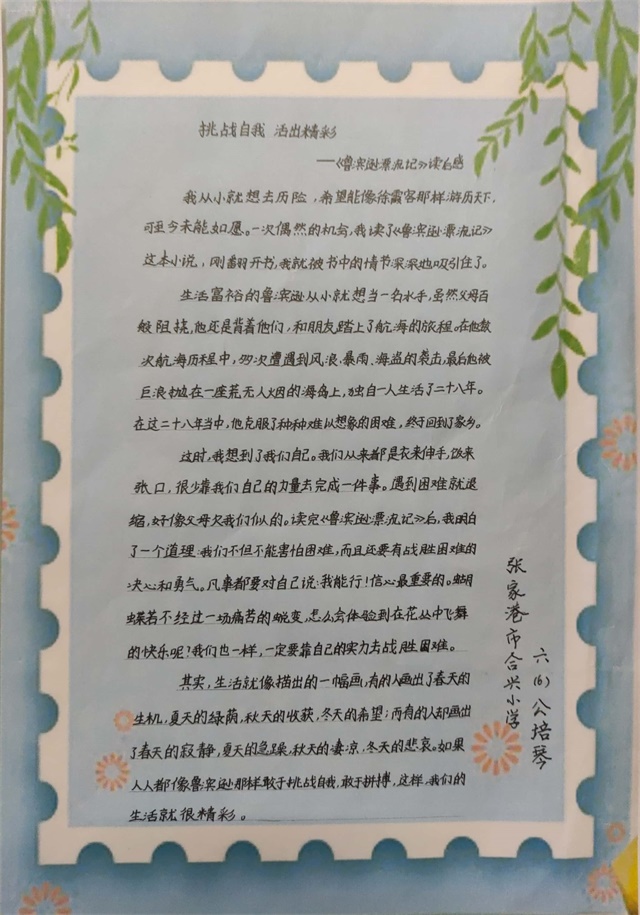 挑战自我 活出精彩
——《鲁滨逊漂流记》读后感
我从小就想去历险，希望能像徐霞客那样游历天下，
可至今未能如愿。一次偶然的机会，我读了《鲁滨逊漂流记》
这本小说，刚翻开书，我就被书中的情节深深地吸引住了。
生活富裕的鲁滨逊从小就想当一名水手，虽然父母百
般阻挠，他还是背着他们，和朋友踏上了航海的旅程。在他数
次航海历程中，多次遭遇到风浪、暴雨、海盗的袭击，最后他被
巨浪抛在一座荒无人烟的海岛上，独自一人生活了二十八年。
在这二十八年当中，他克服了种种难以想象的困难，终于回到了家乡。
这时，我想到了我们自己。我们从来都是衣来伸手，饭来
张口，很少靠我们自己的力量去完成一件事。遇到困难就退
缩，好像父母欠我们似的。读完《鲁滨逊漂流记》后，我明白
了一个道理：我们不但不能害怕困难，而且还要有战胜困难的
决心和勇气。凡事都要对自己说：我能行！信心最重要的。蝴
蝶若不经过一场痛苦的蜕变，怎么会体验到在花丛中飞舞
的快乐呢？我们也一样，一定要靠自己的实力去战胜困难。
其实，生活就像描出的一幅画，有的人画出了春天的
生机，夏天的绿荫，秋天的收获，冬天的希望；而有的人却画出
了春天的寂静，夏天的急躁，秋天的凄凉，冬天的悲哀。如果
人人都像鲁滨逊那样敢于挑战自我，敢于拼搏，这样，我们的
生活就很精彩。
张家港市合兴小学
六（6）公培琴